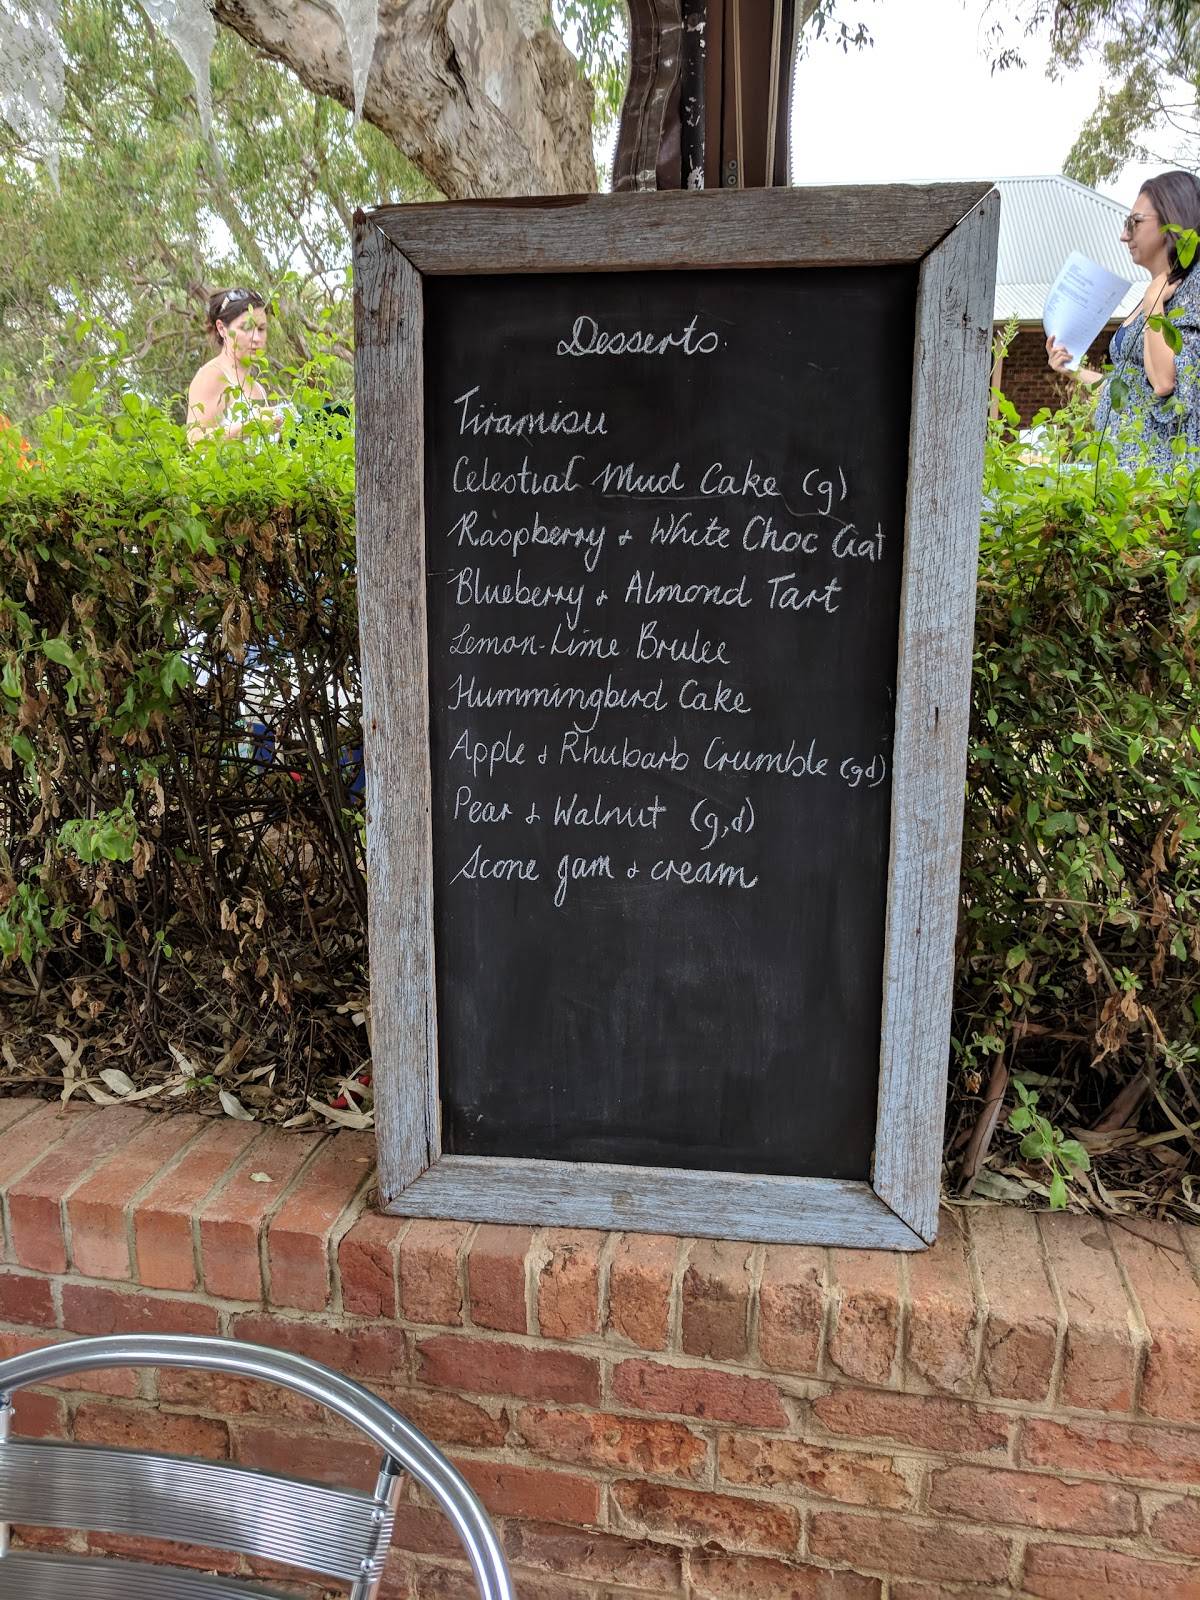 Desserts.
Tiramisu
Celestial Mud Cake (g)
Raspberry & White Choc Gat
Blueberry & Almond Tart
Lemon-Lime Brulee
Hummingbird Cake
Apple & Rhubarb Crumble (gd)
Pear & Walnut (g,d)
Scone jam & cream